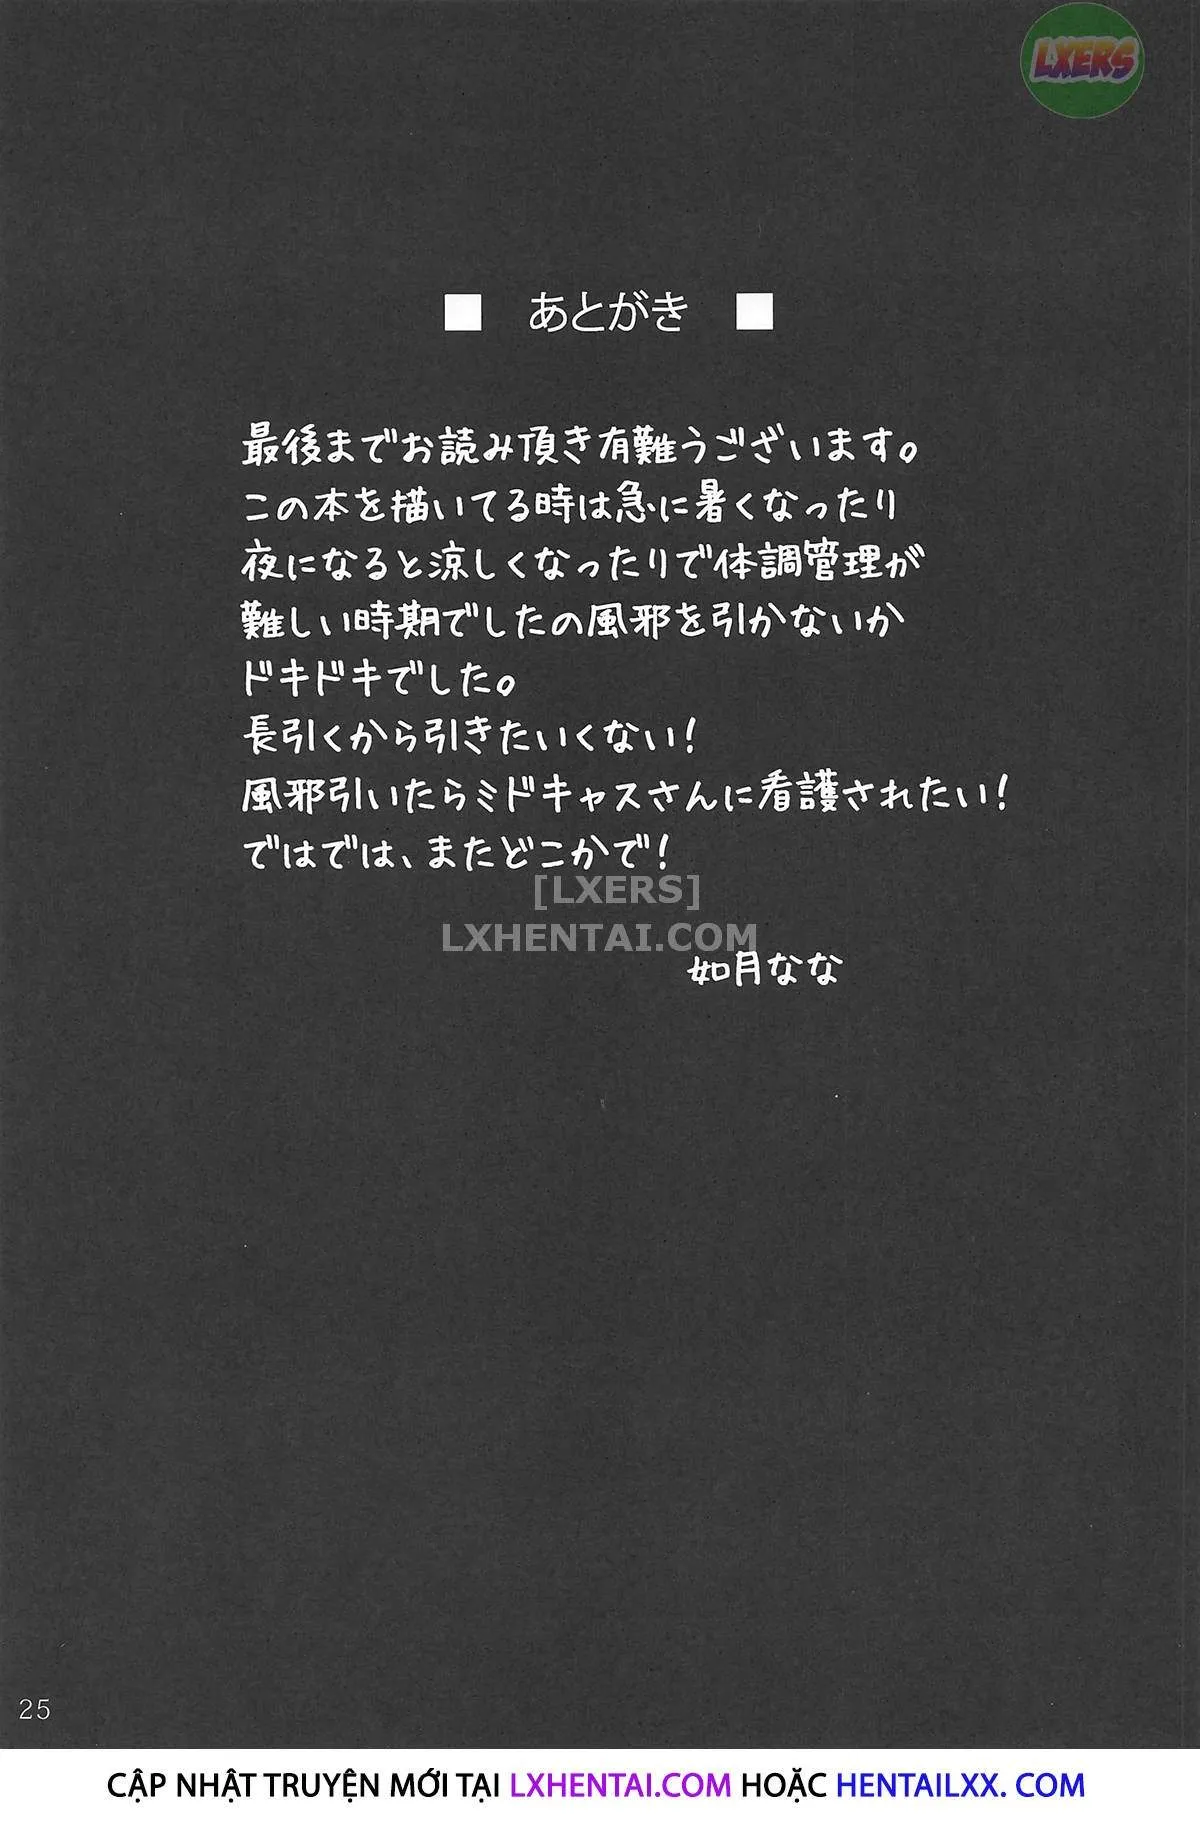 LXERS
■ あとがき ■
最後までお読み頂き有難うございます。
この本を描いてる時は急に暑くなったり
夜になると涼しくなったりで体調管理が
難しい時期でしたの風邪を引かないか
ドキドキでした。
長引くから引きたいくない!
風邪引いたらミドキャスさんに看護されたい!
ではでは、またどこかで!
[LXERS]
LXHENTAI.COM
如月なな
25
CẬP NHẬT TRUYỆN MỚI TẠI LXHENTAI.COM HOẶC HENTAILXX. COM